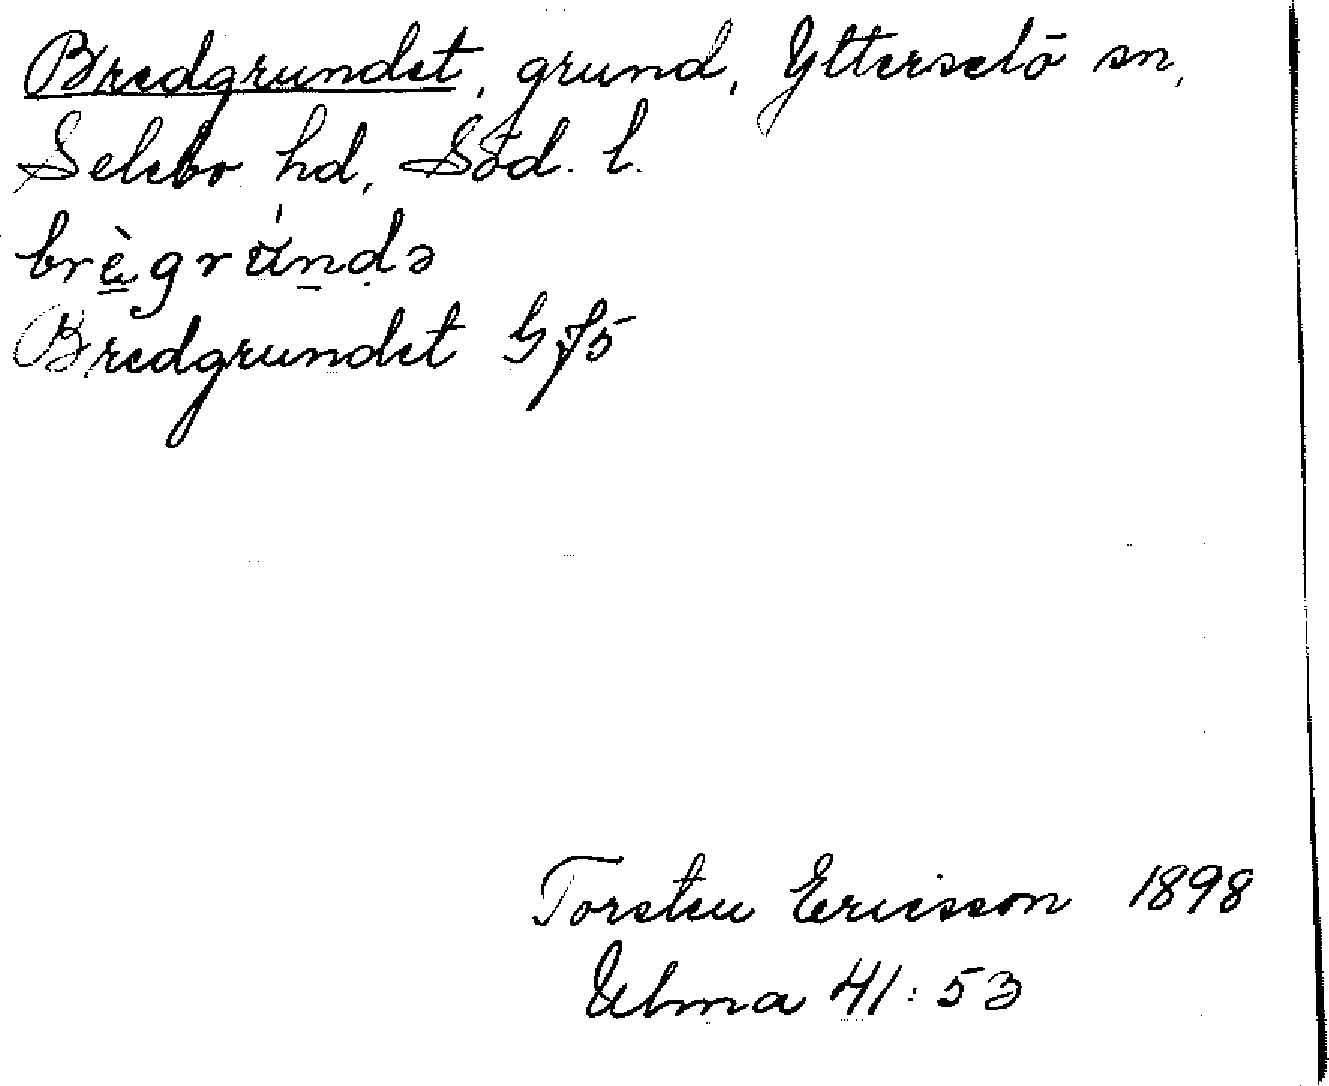 Bredgrundet, grund, Ytterselö sn,
Selebo hd, Söd. l.
brègrúndə
Bredgrundet G f5
Torsten Ericsson 1898
Ulma 41:53